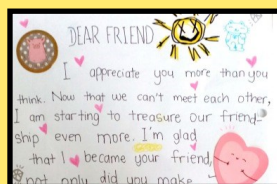 DEAR FRIEND
I appreciate you more than you
think. Now that we can't meet each other,
I am starting to treasure our friend-
ship even more. I'm glad
that I became your friend,
not only did you make